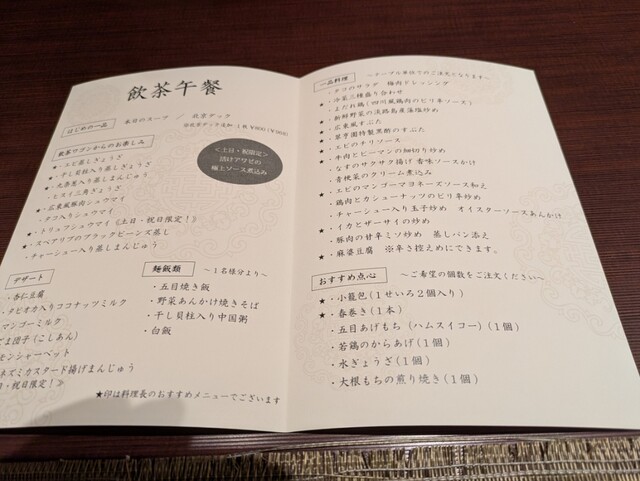 飲茶午餐
はじめの一品
本日のスープ ／ 北京ダック
※北京ダック追加1枚¥900
飲茶ワゴンからのお楽しみ
★・エビ蒸しぎょうざ
★・干し貝柱入り蒸しぎょうざ
★・大葉巻入り蒸しまんじゅう
・ヒスイ三角ぎょうざ
★・広東風豚肉シュウマイ
・タコ入りシュウマイ
★・トリュフシュウマイ《土日・祝日限定！》
★・スペアリブのブラックビーンズ蒸し
・チャーシュー入り蒸しまんじゅう
＜土日・祝限定＞
漬けアワビの
極上ソース煮込み
デザート
・杏仁豆腐
・タピオカ入りココナッツミルク
マンゴーミルク
ごま団子(こしあん)
モンシャーベット
ネズミカスタード揚げまんじゅう
日・祝日限定！》
麺飯類 ～1名様分より～
・五目焼き飯
・野菜あんかけ焼きそば
・干し貝柱入り中国粥
・白飯
★印は料理長のおすすめメニューでございます
一品料理 ～テーブル単位でのご注文になります～
・タコのサラダ 梅肉ドレッシング
★・冷菜三種盛り合わせ
・よだれ鶏(四川風鶏肉のピリ辛ソース)
★・新鮮野菜の淡路島産藻塩炒め
・広東風すぶた
★・翠亨園特製黒酢のすぶた
★・エビのチリソース
★・牛肉とピーマンの細切り炒め
・なすのサクサク揚げ 香味ソースかけ
・青梗菜のクリーム煮込み
★・エビのマンゴーマヨネーズソース和え
・鶏肉とカシューナッツのピリ辛炒め
・チャーシュー入り玉子炒め オイスターソースあんかけ
★・イカとザーサイの炒め
・豚肉の甘辛ミソ炒め 蒸しパン添え
★・麻婆豆腐 ※辛さ控えめにできます。
おすすめ点心 ～ご希望の個数をご注文ください～
★・小籠包(1せいろ2個入り)
★・春巻き(1本)
・五目あげもち(ハムスイコー)(1個)
・若鶏のからあげ(1個)
・水ぎょうざ(1個)
・大根もちの煎り焼き(1個)